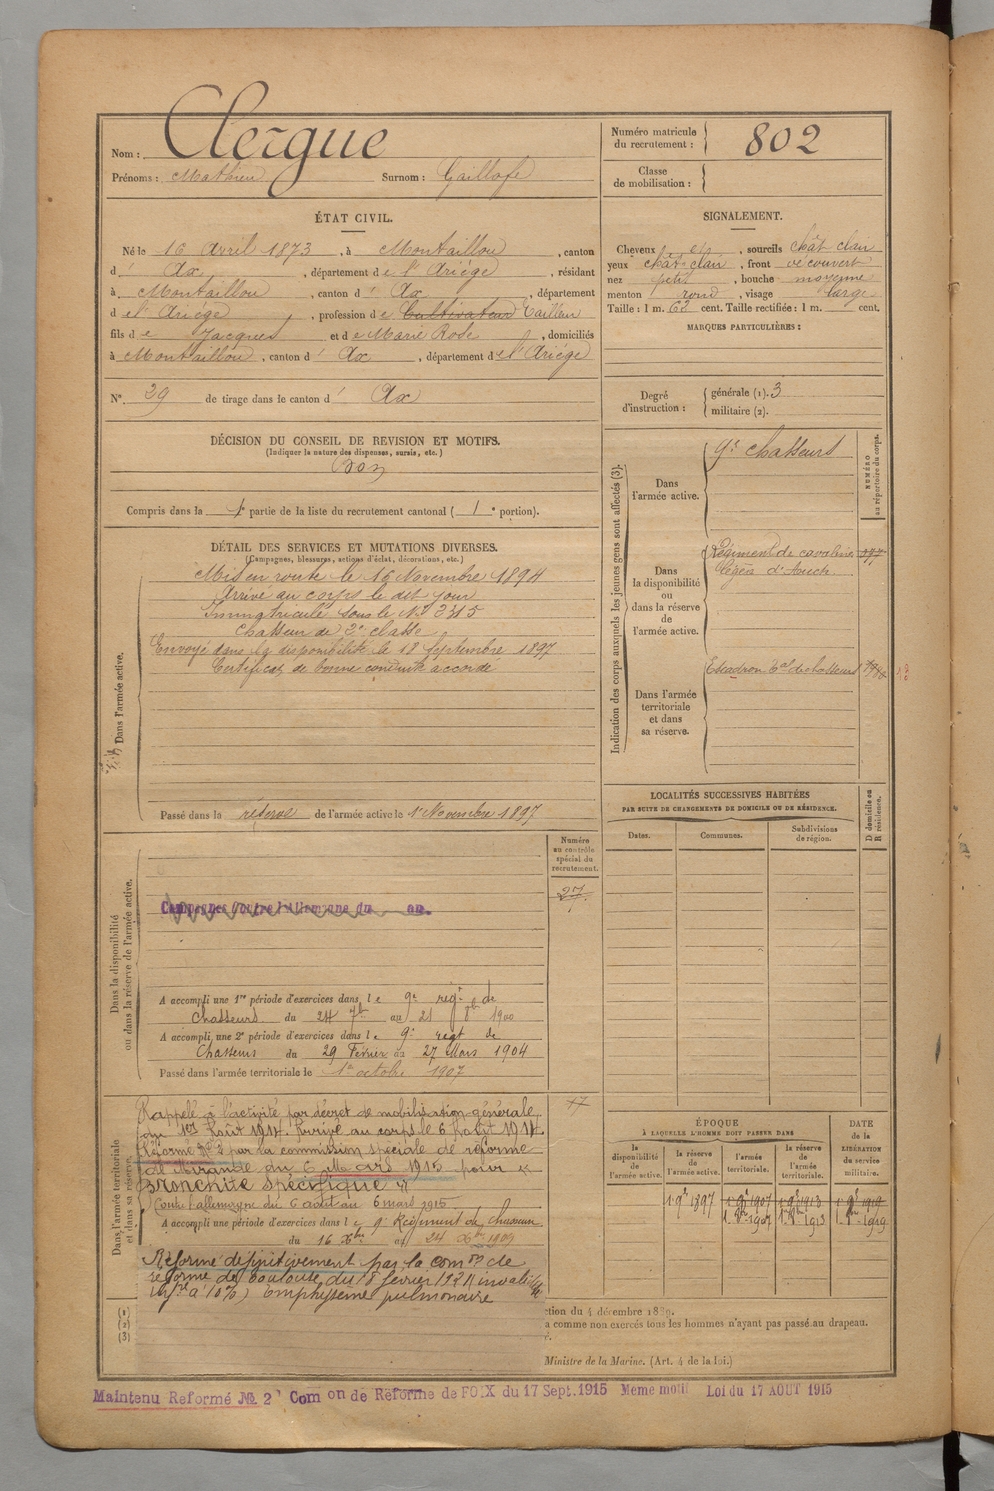 Nom : Clergue
Prénoms : Mathieu Surnom : Gaillofe
Numéro matricule du recrutement : 802
Classe de mobilisation :
ÉTAT CIVIL.
Né le 16 Avril 1873, à Montaillou, canton
d' Ax, département de l'Ariége, résidant
à Montaillou, canton d' Ax, département
de l'Ariége, profession de Cultivateur Tailleur
fils de Jacques et de Marie Rose, domiciliés
à Montaillou, canton d' Ax, département de l'Ariége
N° 29 de tirage dans le canton d' Ax
SIGNALEMENT.
Cheveux et, sourcils chât clair
yeux chât clair, front découvert
nez petit, bouche moyenne
menton rond, visage large
Taille : 1 m. 62 cent. Taille rectifiée : 1 m. cent.
MARQUES PARTICULIÈRES :
Degré d'instruction : générale (1). 3
militaire (2).
DÉCISION DU CONSEIL DE REVISION ET MOTIFS.
(Indiquer la nature des dispenses, sursis, etc.)
Bon
Compris dans la 1e partie de la liste du recrutement cantonal ( 1e portion).
DÉTAIL DES SERVICES ET MUTATIONS DIVERSES.
(Campagnes, blessures, actions d'éclat, décorations, etc.)
Dans l'armée active.
Mis en route le 16 Novembre 1894
Arrivé au corps le dit jour
Immatriculé sous le N° 2315
Chasseur de 2e classe
Envoyé dans la disponibilité le 18 Septembre 1897
Certificat de bonne conduite accordé
Passé dans la réserve de l'armée active le 1er Novembre 1897
Indication des corps auxquels les jeunes gens sont affectés (3).
NUMÉRO au répertoire du corps.
Dans l'armée active.
9e chasseurs
Dans la disponibilité ou dans la réserve de l'armée active.
Régiment de cavalerie
légère d'Auch.
Dans l'armée territoriale et dans sa réserve.
Escadron tal de chasseurs
LOCALITÉS SUCCESSIVES HABITÉES
PAR SUITE DE CHANGEMENTS DE DOMICILE OU DE RÉSIDENCE.
Dates.
Communes.
Subdivisions de région.
D domicile ou R résidence.
Dans la disponibilité ou dans la réserve de l'armée active.
Numéro au contrôle spécial du recrutement.
27
Campagnes Contre l'Allemagne du au.
A accompli une 1re période d'exercices dans le 9e régt de
Chasseurs du 24 7bre au 21 8bre 1900
A accompli une 2e période d'exercices dans le 9e régt de
Chasseurs du 29 Février au 27 Mars 1904
Passé dans l'armée territoriale le 1er octobre 1907
Dans l'armée territoriale et dans sa réserve.
Rappelé à l'activité par décret de mobilisation générale
du 1er Août 1914. Arrivé au corps le 6 août 1914
Réformé N° 2 par la commission spéciale de réforme
de Mirande du 6 Mars 1915 pour «
Bronchite spécifique »
Contre l'allemagne du 6 août au 6 mars 1915
A accompli une période d'exercices dans le 9e Régiment de chasseurs
du 16 Xbre au 24 Xbre 1909
Réformé définitivement par la comon de
réforme de Toulouse du 8 février 1921 invalidité
infre à 10%) Emphysème pulmonaire
ÉPOQUE
À LAQUELLE L'HOMME DOIT PASSER DANS
la disponibilité de l'armée active.
la réserve de l'armée active.
l'armée territoriale.
la réserve de l'armée territoriale.
DATE de la LIBÉRATION du service militaire.
(1)
(2)
(3)
tion du 4 décembre 1889.
a comme non exercés tous les hommes n'ayant pas passé au drapeau.
Ministre de la Marine. (Art. 4 de la loi.)
Maintenu Reformé № 2 Com on de Reforme de FOIX du 17 Sept. 1915 Meme motif Loi du 17 AOUT 1915